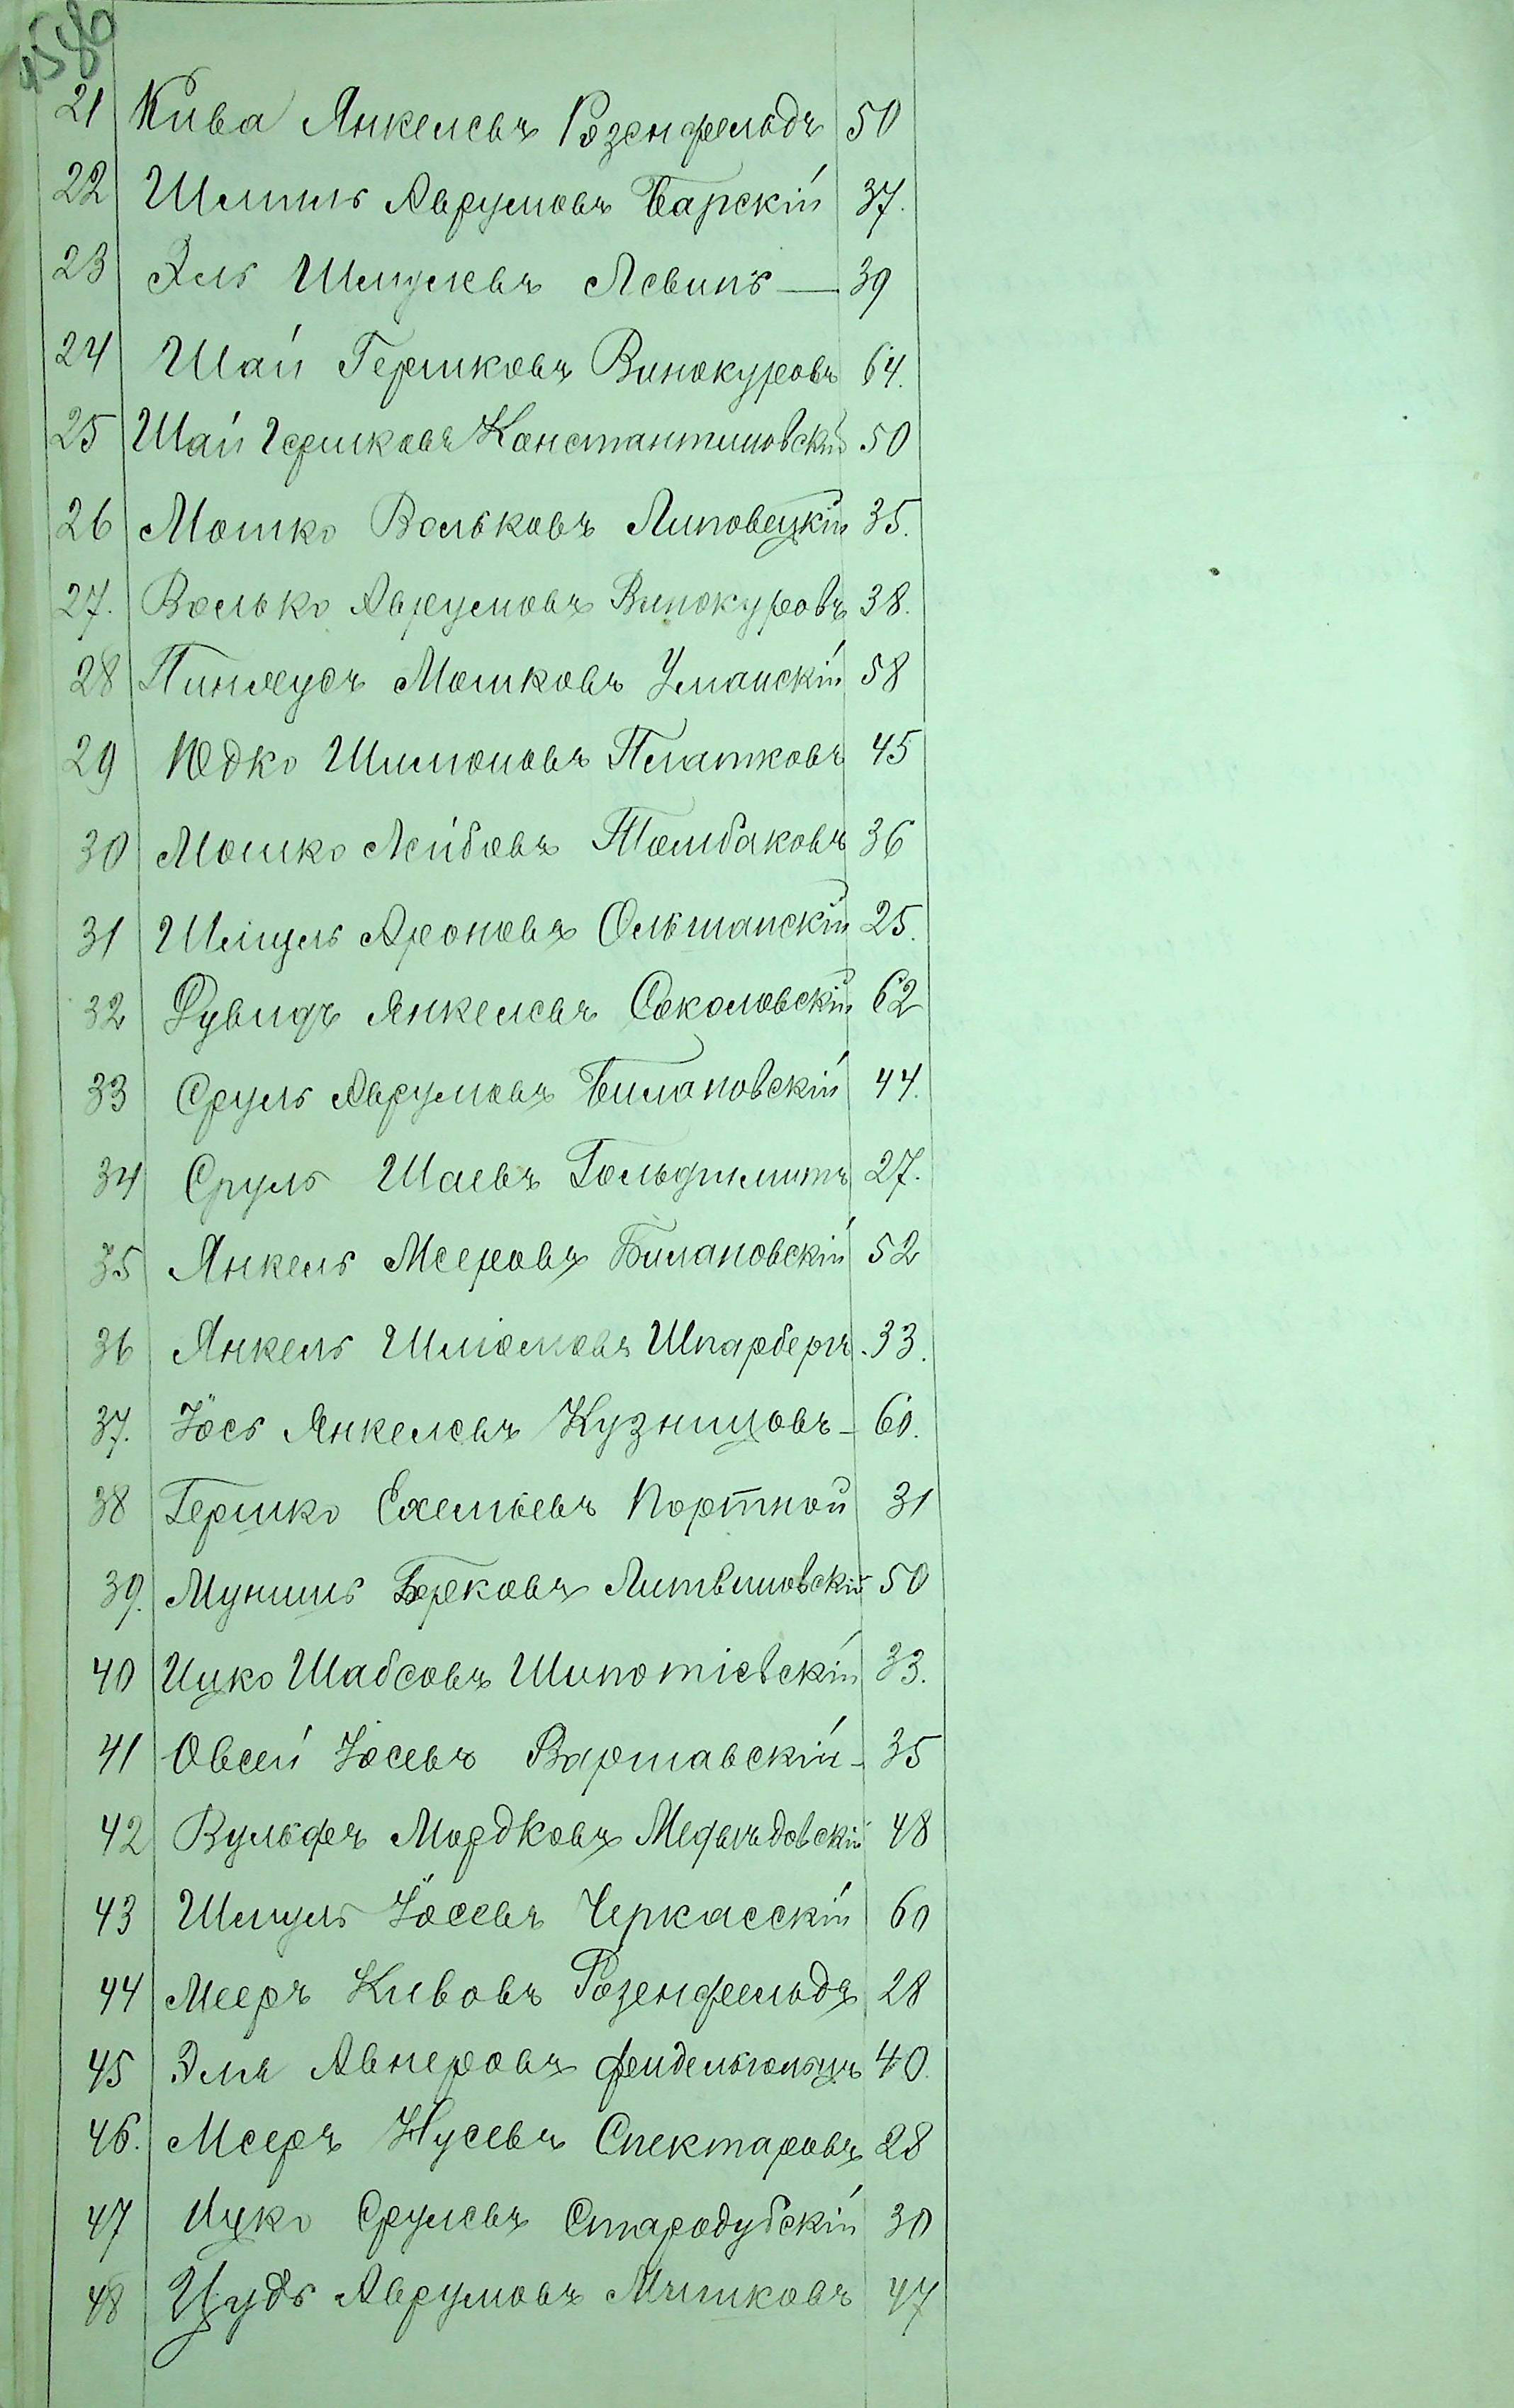 4586
21 Кива Янкелевъ Розенфельдъ 50
22 Шмиль Аврумовъ Барскій 37.
23 Эль Шмулевъ Левинъ — 39
24 Шай Гершковъ Винокуровъ 64.
25 Шай Гершковъ Константиновскій 50
26 Мошко Вольковъ Липовецкій 35.
27. Волько Аврумовъ Винокуровъ 38.
28 Пинхусъ Мошковъ Уманскій 58
29 Юдко Шимоновъ Платковъ 45
30 Мошко Лейбовъ Томбаковъ 36
31 Шмуль Ароновъ Ольшанскій 25.
32 Дувидъ Янкелевъ Соколовскій 62
33 Сруль Аврумовъ Билановскій 44.
34 Сруль Шаевъ Гольдшмитъ 27.
35 Янкель Мееровъ Билановскій 52
36 Янкель Шліомовъ Шпарберъ 33.
37. Іось Янкелевъ Кузнецовъ - 60.
38 Гершко Ехельевъ Портной 31
39. Мунишъ Берковъ Литвиновскій 50
40 Ицко Шабсовъ Шипотіевскій 33.
41 Овсей Іосевъ Варшавскій - 35
42 Вульфъ Мордковъ Медвѣдовскій 48
43 Шмуль Іосевъ Черкасскій 60
44 Мееръ Кивовъ Розенфельдъ 28
45 Эля Авнеровъ Фендельгольцъ 40.
46. Мееръ Нусевъ Спектаровъ 28
47 Ицко Срулевъ Стародубскій 30
48 Цудъ Аврумовъ Мѣшковъ 47